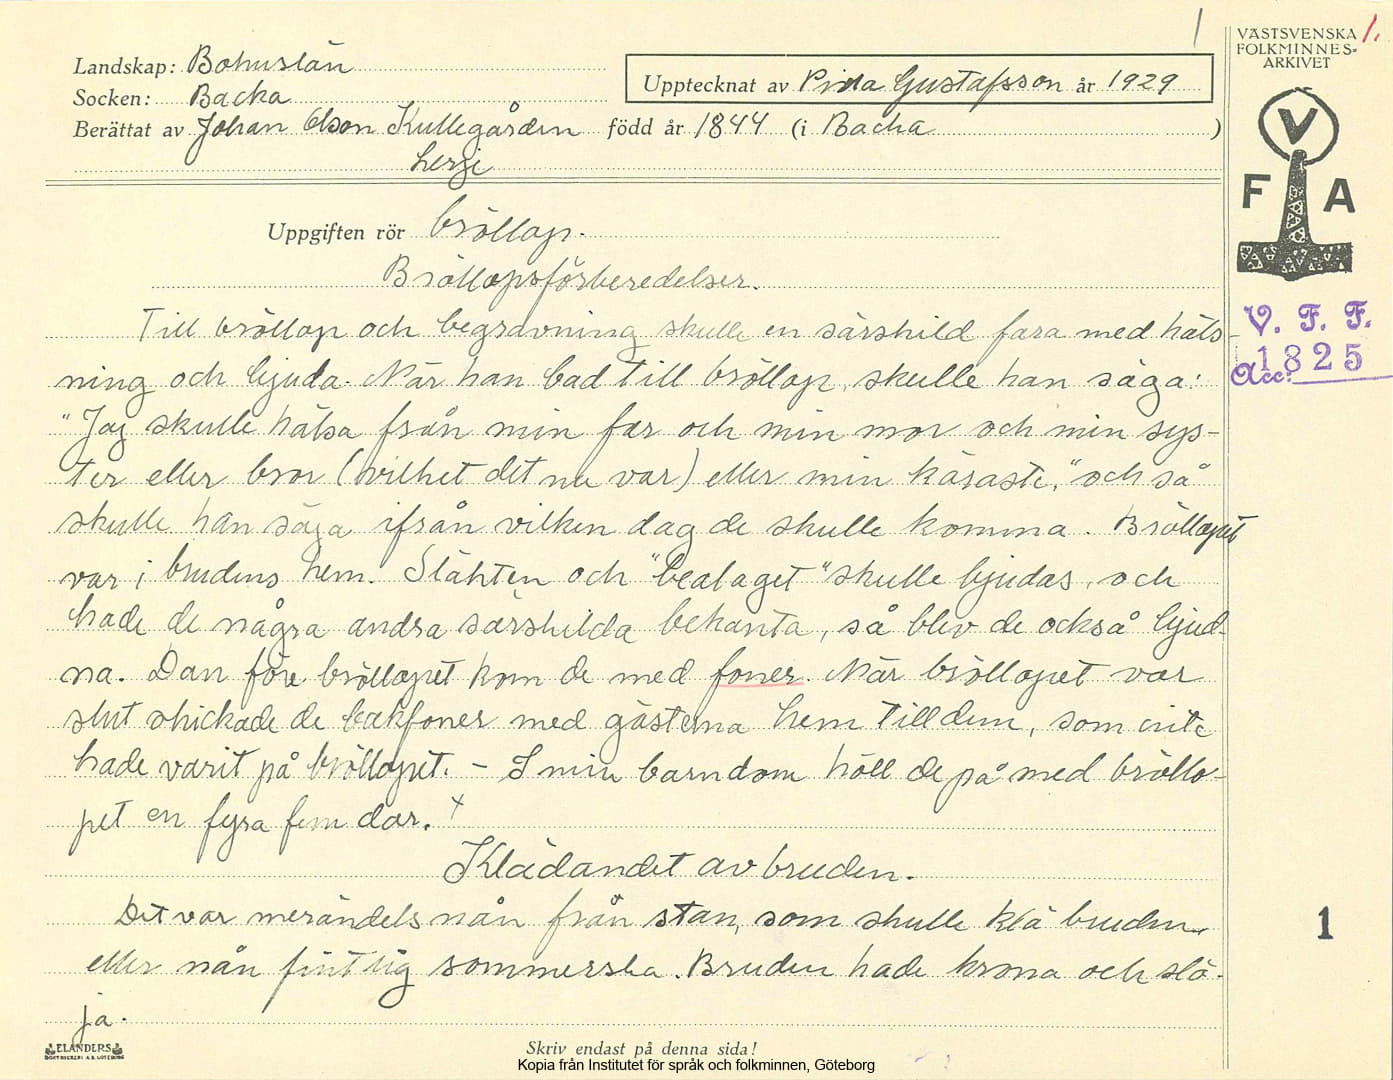 1
VÄSTSVENSKA
FOLKMINNES-
ARKIVET
1.
Landskap: Bohuslän
Socken: Backa
Upptecknat av Pina Gustafsson år 1929
Berättat av Johan Olson Kullegården född år 1844 (i Backa )
V
F A
Uppgiften rör bröllop.
Bröllopsförberedelser.
Till bröllop och begravning skulle en särskild fara med häls-
ning och bjuda. När han bad till bröllop, skulle han säga:
"Jag skulle hälsa från min far och min mor och min sys-
ter eller bror (vilket det nu var) eller min käraste," och så
skulle han säga ifrån vilken dag de skulle komma. Bröllopet
var i brudens hem. Släkten och "bealaget" skulle bjudas, och
hade de några andra särskilda bekanta, så blev de också bjud-
na. Dan före bröllopet kom de med foner. När bröllopet var
slut skickade de bakfoner med gästerna hem till dem, som inte
hade varit på bröllopet. – I min barndom höll de på med bröllo-
pet en fyra fem dar. x
Klädandet av bruden.
Det var merändels nån från stan, som skulle klä bruden,
eller nån fintlig sömmerska. Bruden hade krona och slö-
ja.
V. F. F.
Acc: 1825
1
ELANDERS
BOKTRYCKERI A.B. GÖTEBORG
Skriv endast på denna sida!
Kopia från Institutet för språk och folkminnen, Göteborg